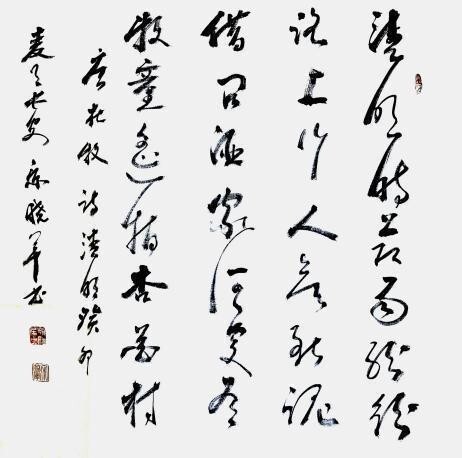 清明时节雨纷纷
路上行人欲断魂
借问酒家何处有
牧童遥指杏花村
唐杜牧诗清明癸卯
夏长安晓军书